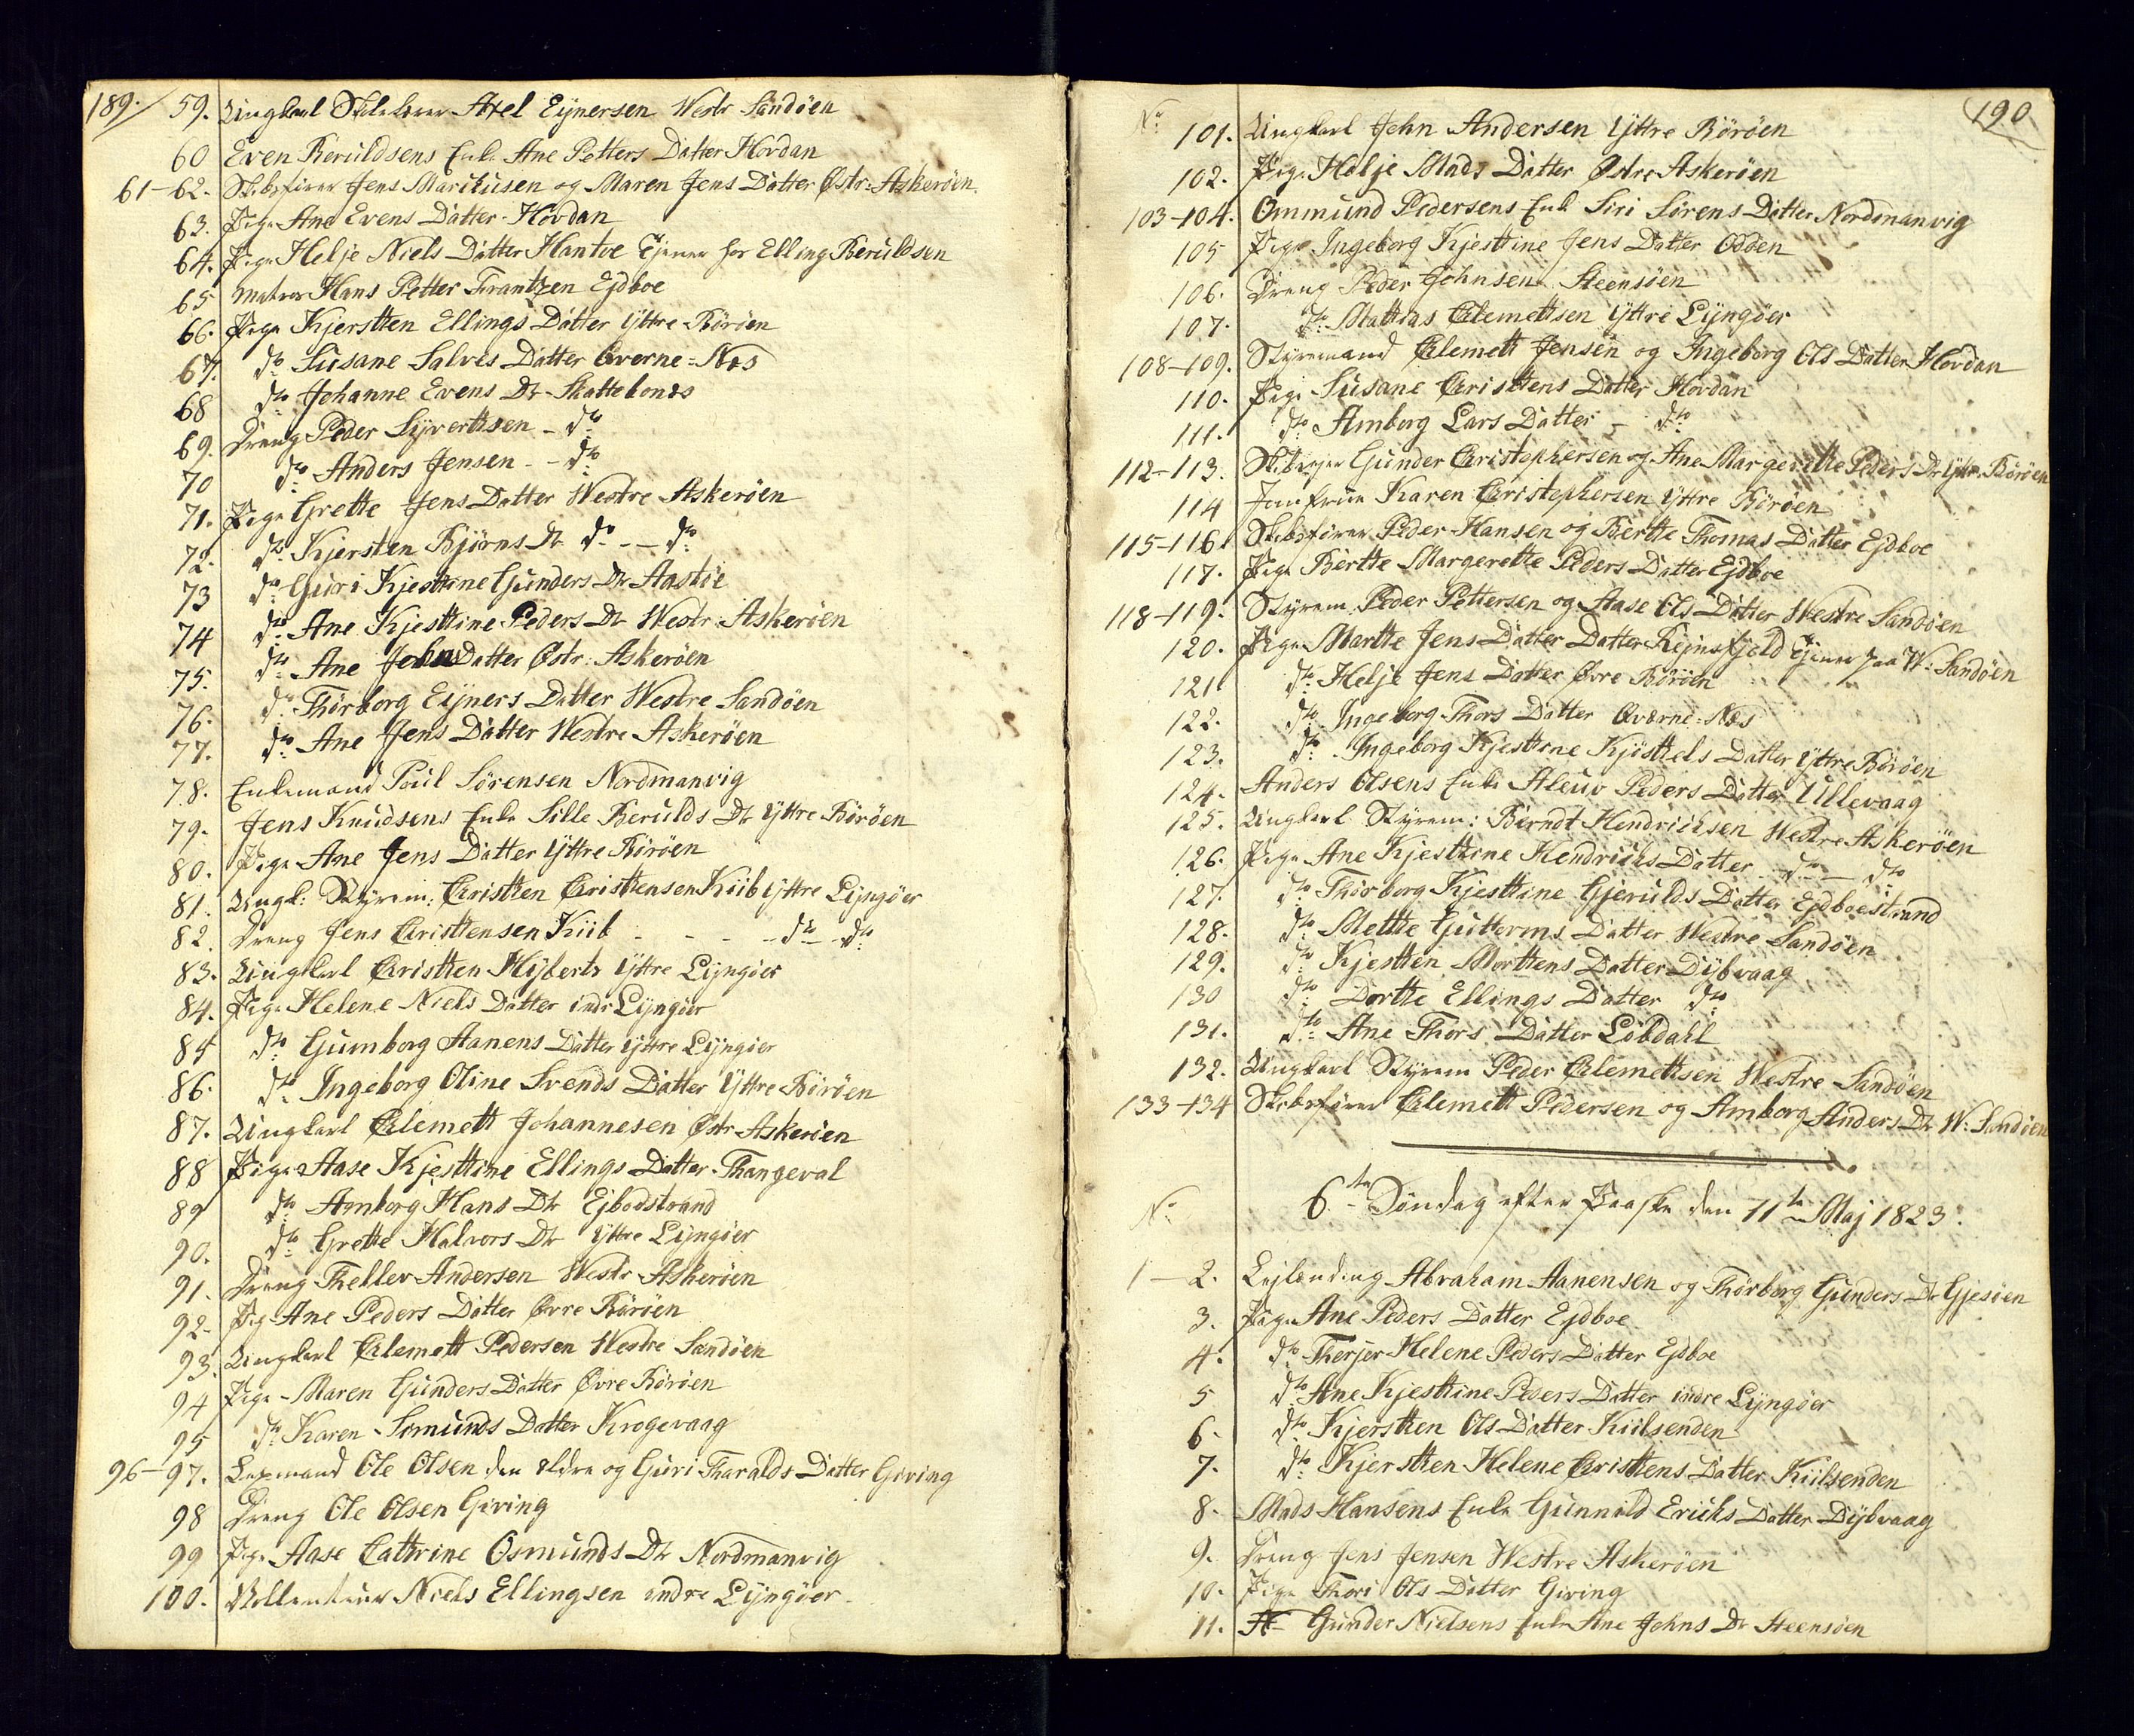 189.
59. Ungkarl Skolelærer Axel Eijnersen Westr Sandöen
60 Even Beruldsens Enke Ane Petters Datter Hovdan
61-62. Skibsfører Jens Marcussen og Maren Jens Datter Østr: Askeröen
63. Pige Ane Evens Datter Hovdan
64. Pige Helje Niels Datter Hantoe tjener for Elling Beruldsen
65 Matros Hans Petter Frantzen Ejdboe
66. Pige Kjerstten Ellings Datter Ÿttre Böröen
67. dto Susane Salves Datter Qverne-Næs
68 dto Johanne Evens Dtr Skattebonæs
69. Dreng Peder Sÿvertsen - dto
70 dto Anders Jensen - - dto
71. Pige Grette Jens Datter Westre Askeröen
72. dto Kjersten Björns Dtr do - - dto
73 dto Guri Kjesttine Gunders Dtr Aastöe
74 dto Ane Kjesttine Peders Dtr Westr Askeröen
75. dto Ane Johns Datter Østr: Askeröen
76. do Thörborg Eijners Datter Westre Sandöen
77. dto Ane Jens Datter Westre Askeröen
78. Enkemand Poul Sörensen Nordmanvig
79. Jens Knudsens Enke Sille Berulds Dtr Ÿttre Böröen
80. Pige Ane Jens Datter Ÿttre Böröen
81. Ungk: Stÿrm: Christten Christtensen Kiib Ÿttre Lÿngöer
82. Dreng Jens Christtensen Kiib - - - - dto - dto
83. Ungkarl Christten Hÿberts Ÿttre Lÿngöer
84. Pige Helene Niels Datter indr Lÿngöer
85 dto Gumborg Aanens Datter Ÿttre Lÿngöer
86. dto Ingeborg Oline Svends Datter Ÿttre Böröen
87. Ungkarl Clemett Johannesen Østr Askeröen
88 Pige Aase Kjesttine Ellings Datter Thangeval
89 dto Amborg Hans Dtr Ejbodstrand
90. dto Grette Halvors Dtr Ÿttre Lÿngöer
91. Dreng Thellev Andersen Westr Askeröen
92. Pig Ane Peders Datter Øvre Böröen
93. Ungkarl Clemett Pedersen Westre Sandöen
94 Pige Maren Gunders Datter Øvre Böröen
95 dto Karen Somunds Datter Krogevaag
96-97. Ole Olsen den eldre og Guri Tharalds Datter Giving
98 Dreng Ole Olsen Giving
99 Pige Aase Cathrine Osmunds Dtr Nordmanvig
100. Niels Ellingsen indre Lÿngöer
190
No
101. Ungkarl John Andersen Ÿttre Böröen
102. Pige Helje Mads Datter Østre Askeröen
103-104. Ommund Pedersens Enke Siri Sörens Datter Nordmanvig
105 Pige Ingeborg Kjesttine Jens Datter Odden
106. Dreng Peder Johnsen Steensöen
107. do Mattias Clemettsen Ÿttre Lÿngöer
108-109. Stÿremand Clemett Jensen og Ingeborg Ols Datter Hovdan
110. Pige Susane Christtens Datter Hovdan
111. dto Amborg Lars Datter - dto
112-113. Gunder Christophersen og Ane Margerethe Peders Dtr Ÿttr. Böröen
114 Jomfrue Karen Christophersen Ÿttre Böröen
115-116. Skibsfører Peder Hansen og Bertte Thomas Datter Ejdboe
117. Pige Bertte Margerette Peders Datter Ejdboe
118-119. Stÿrem Peder Pettersen og Aase Ols Datter Westre Sandöen
120. Pige Martte Jens Datter Datter Rejnefjeld tjener paa W: Sandöen
121. dto Helje Jens Datter Øvre Böröen
122. dto Ingeborg Thors Datter Qværne-Næs
123. dto Ingeborg Kjesttine Kjisttels Datter Ÿttre Böröen
124. Anders Olsens Enke Aleuv Peders Datter Ullevaag
125. Ungkarl Stÿrem: Berndt Hendrichsen Westre Askeröen
126. Pige Ane Kjesttine Hendrichs Datter dto - dto
127. dto Thörborg Kjesttine Gjerulds Datter Ejdboestrand
128. dto Mettte Gutterms Datter Westre Sandöen
129. dto Kjestten Morttens Datter Dÿbvaag
130 dto Dortte Ellings Datter dto
131. dto Ane Thors Datter Löbdahl
132. Ungkarl Stÿrem Peder Clemettsen Westre Sandöen
133-134 Skibsfører Clemett Pedersen og Amborg Anders Dtr W: Sandöen
No 6te Söndag efter Paaske den 11te Maj 1823.
1-2. Lejlænding Abraham Aanensen og Thörborg Gunders Dtr Gjesöen
3. Pige Ane Peders Datter Ejdboe
4. dto Therjer Helene Peders Datter Ejdboe
5 dto Ane Kjesttine Peders Datter indre Lÿngöer
6. dto Kjerstten Ols Datter Kiilsenden
7. dto Kjerstten Helene Christtens Datter Kiilsenden
8. Mads Hansens Enke Gunnild Erichs Datter Dÿbvaag
9. Dreng Jens Jensen Westre Askeröen
10. Pige Thori Ols Datter Giving
11. Gunder Nielsens Enke Ane Johns Dr Steensöen